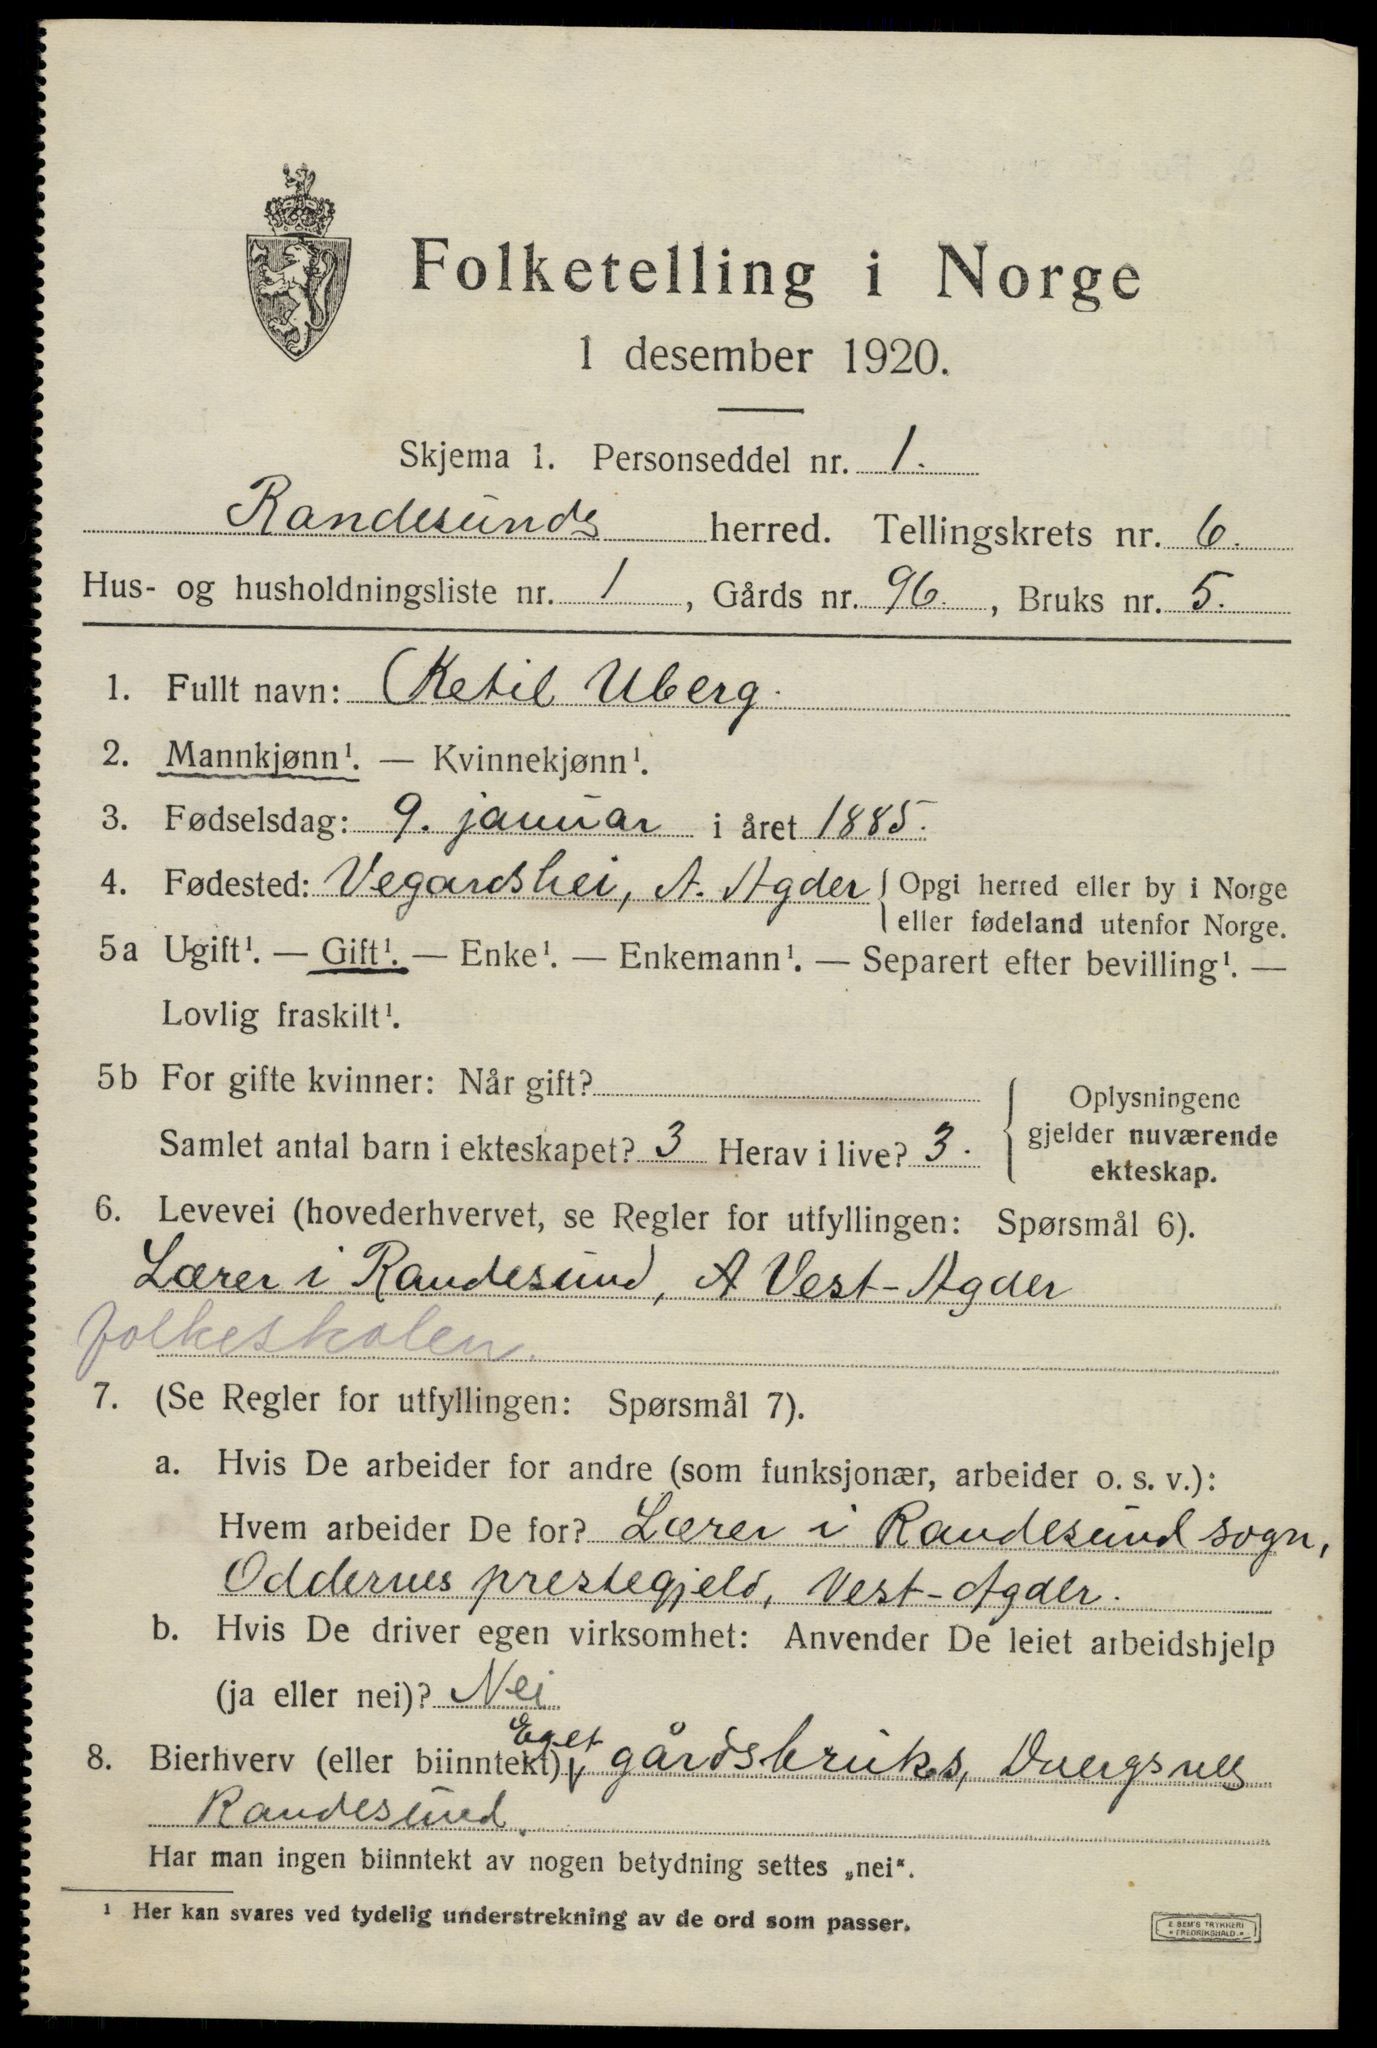 Folketelling i Norge
1 desember 1920.
Skjema 1. Personseddel nr. 1.
Randesunds herred. Tellingskrets nr. 6.
Hus- og husholdningsliste nr. 1, Gårds nr. 96., Bruks nr. 5.
1. Fullt navn: Ketil Uberg.
2. Mannkjønn¹. — Kvinnekjønn¹.
3. Fødselsdag: 9. januar i året 1885.
4. Fødested: Vegardshei, A. Agder { Opgi herred eller by i Norge
eller fødeland utenfor Norge.
5a Ugift¹. — Gift¹. — Enke¹. — Enkemann¹. — Separert efter bevilling¹. —
Lovlig fraskilt¹.
5b For gifte kvinner: Når gift?
Samlet antal barn i ekteskapet? 3 Herav i live? 3.
Oplysningene
gjelder nuværende
ekteskap.
6. Levevei (hovederhvervet, se Regler for utfyllingen: Spørsmål 6).
Lærer i Randesund, A Vest-Agder
folkeskolen.
7. (Se Regler for utfyllingen: Spørsmål 7).
a. Hvis De arbeider for andre (som funksjonær, arbeider o. s. v.):
Hvem arbeider De for? Lærer i Randesund sogn,
Oddernes prestegjeld, Vest-Agder.
b. Hvis De driver egen virksomhet: Anvender De leiet arbeidshjelp
(ja eller nei)? Nei
Eget
8. Bierhverv (eller biinntekt) gårdsbruks, Dvergsnes
Randesund.
Har man ingen biinntekt av nogen betydning settes „nei“.
¹ Her kan svares ved tydelig understrekning av de ord som passer.
E SEM'S TRYKKERI
FREDRIKSHALD